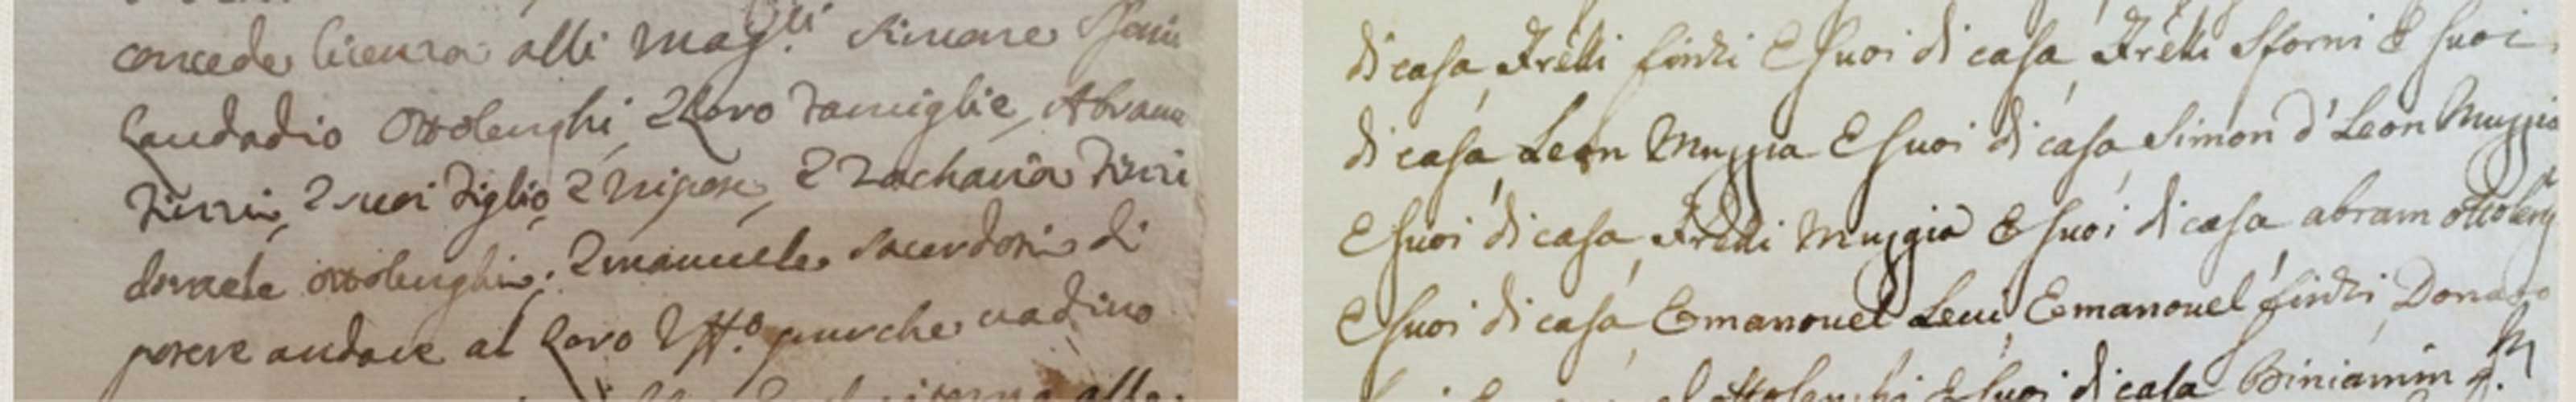 concede licenza alli Mag.ci Simone
Laudadio Ottolenghi, e loro famiglie, Abram
Finzi, e suoi figlio e nipote, e Zacharia Finzi
Donaele Ottolenghi, Emanuele Sacerdoti di
potere andare al loro Eff.o purche vadino
di casa, Frelli finzi E suoi di casa, Frelli Sforni E suoi
di casa, Leon Muggia E suoi di casa, Simon d' Leon Muggia
E suoi di casa, Frelli Muggia E suoi di casa abram ottolengi
E suoi di casa, Emanouel Leui, Emanouel finzi, Donato
E suoi di casa Biniamin